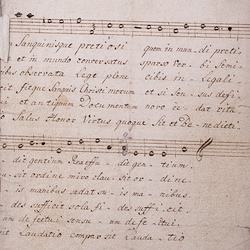 Sanguinisque pretiosi quem in mundi preti
et in mundo conversatus sparso Verbi Semi
bus observata Lege plene cibis in Legali
cit, fitque Sanguis Christi merum et si Sensus defi
et antiquum Documentum novo cedat ritu
Salus Honor Virtus quoque Sit et Benedicti
ditgentium Reseffu- ditgentium
sit ordine miro clausit ordine
is manibus se dat suis manibus
des sufficit sola fides sufficit
um defectui sensuum defectui
it Laudatio compar sit Laudatio